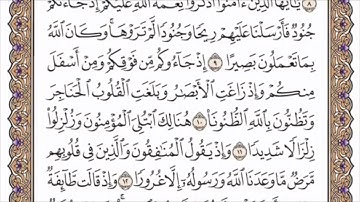 ٨ يَٰٓأَيُّهَا ٱلَّذِينَ ءَامَنُوا۟ ٱذْكُرُوا۟ نِعْمَةَ ٱللَّهِ عَلَيْكُمْ إِذْ جَآءَتْكُمْ
جُنُودٌ فَأَرْسَلْنَا عَلَيْهِمْ رِيحًا وَجُنُودًا لَّمْ تَرَوْهَا وَكَانَ ٱللَّهُ
بِمَا تَعْمَلُونَ بَصِيرًا ٩ إِذْ جَآءُوكُم مِّن فَوْقِكُمْ وَمِنْ أَسْفَلَ
مِنكُمْ وَإِذْ زَاغَتِ ٱلْأَبْصَٰرُ وَبَلَغَتِ ٱلْقُلُوبُ ٱلْحَنَاجِرَ
وَتَظُنُّونَ بِٱللَّهِ ٱلظُّنُونَا۠ ١٠ هُنَالِكَ ٱبْتُلِىَ ٱلْمُؤْمِنُونَ وَزُلْزِلُوا۟
زِلْزَالًا شَدِيدًا ١١ وَإِذْ يَقُولُ ٱلْمُنَٰفِقُونَ وَٱلَّذِينَ فِى قُلُوبِهِم
مَّرَضٌ مَّا وَعَدَنَا ٱللَّهُ وَرَسُولُهُۥٓ إِلَّا غُرُورًا ١٢ وَإِذْ قَالَت طَّآئِفَةٌ